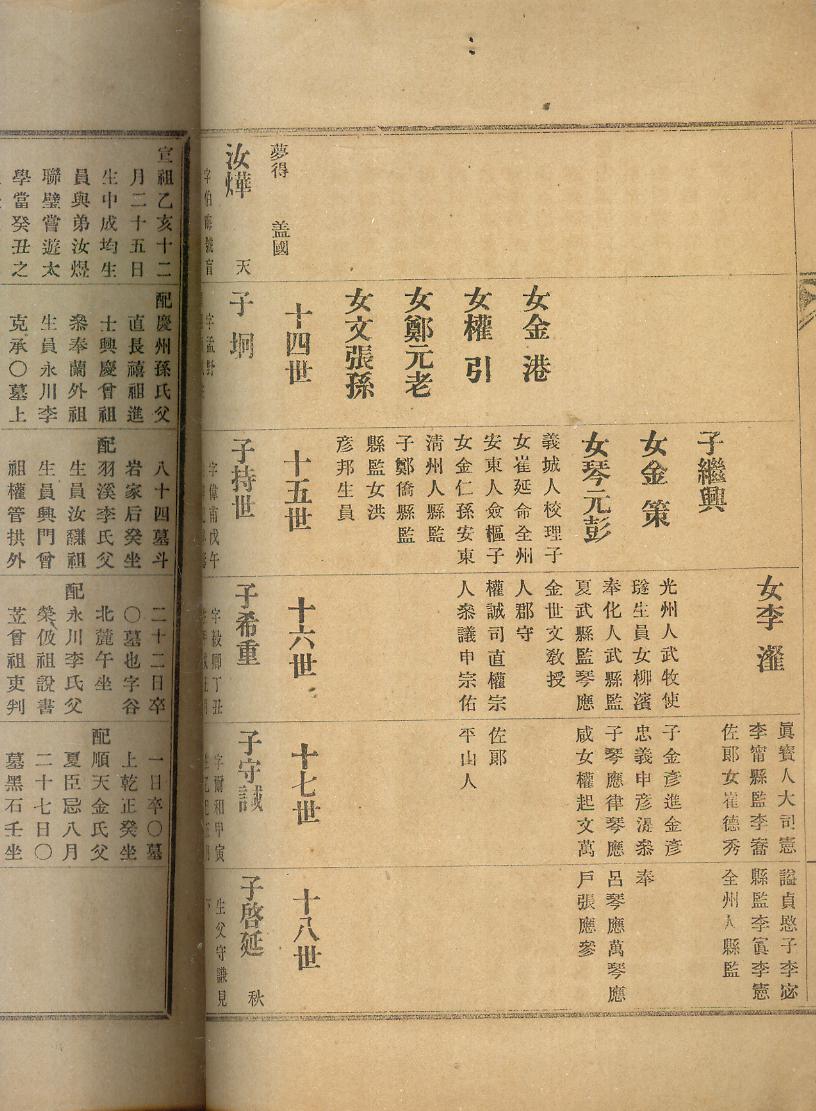 夢得 盖國
汝燁 天
女金港
女權引
女鄭元老
女文張孫
十四世
子坰
字孟野
子繼興
女金策
女琴元彭
義城人校理子
女崔延命全州
安東人僉樞子
女金仁孫安東
淸州人縣監
子鄭僑縣監
縣監女洪
彦邦生員
十五世
子持世
字偉甫戊午
女李瀣
光州人武牧使
璲生員女柳濱
奉化人武縣監
夏武縣監琴應
金世文敎授
人郡守
權誠司直權宗
人叅議申宗佑
十六世
子希重
字毅卿丁丑
眞寶人大司憲
李甯縣監李㝯
佐郞女崔德秀
子金彦進金彦
忠義申彦湜叅
子琴應律琴應
咸女權起文萬
佐郞
平山人
十七世
子守諴
字爾和甲寅
謚貞愍子李宓
縣監李寘李憲
全州人縣監
奉
呂琴應萬琴應
戶張應參
十八世
子啓延 秋
生父守謙見
宣祖乙亥十二
月二十五日
生中成均生
員與弟汝煜
聯璧嘗遊太
學當癸丑之
配慶州孫氏父
直長禧祖進
士興慶曾祖
叅奉蘭外祖
生員永川李
克承〇墓上
八十四墓斗
岩家后癸坐
配羽溪李氏父
生員汝䭲祖
生員興門曾
祖權管拱外
二十二日卒
〇墓也字谷
北麓午坐
配永川李氏父
榮伋祖說書
苙曾祖吏判
一日卒〇墓
上乾正癸坐
配順天金氏父
夏臣忌八月
二十七日〇
墓黑石壬坐